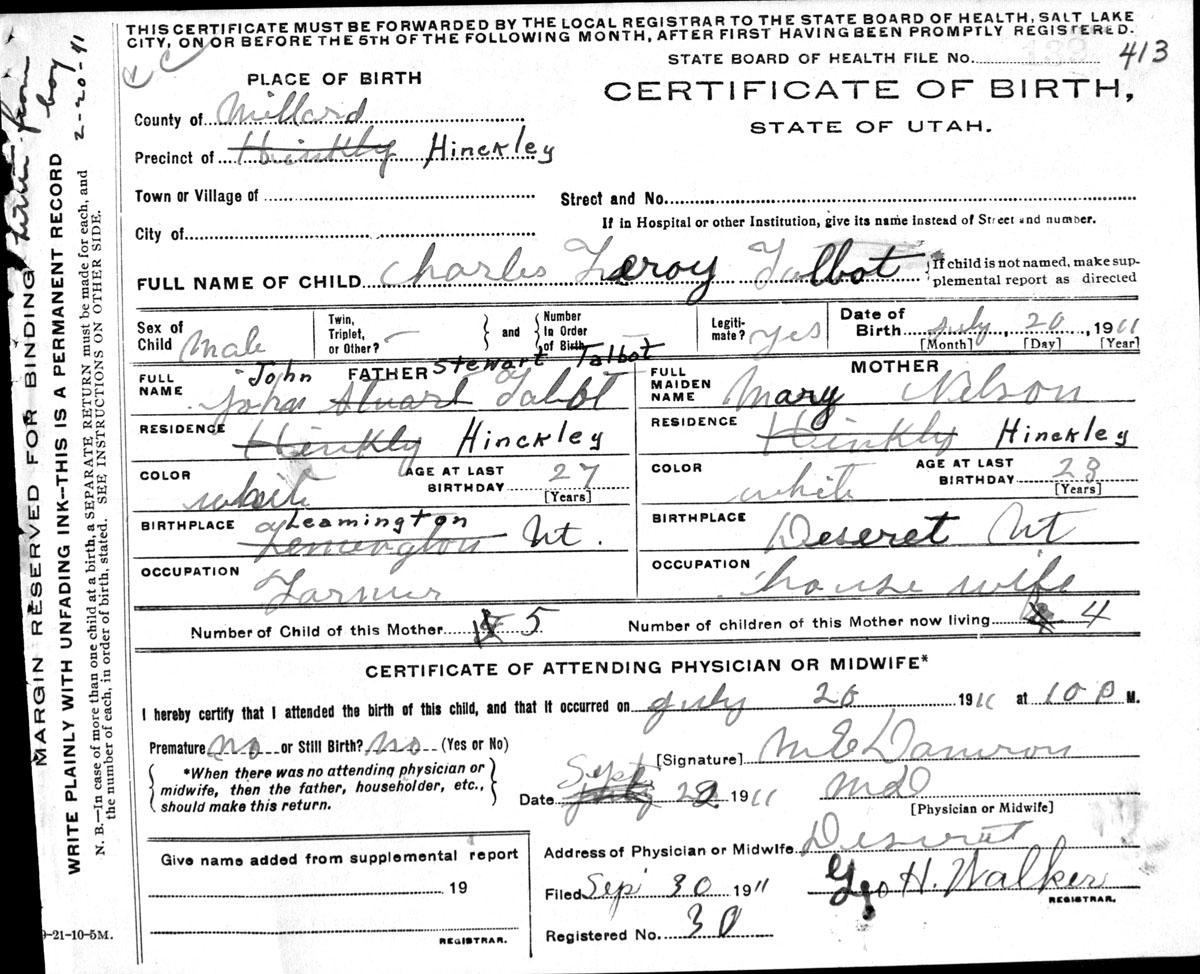 THIS CERTIFICATE MUST BE FORWARDED BY THE LOCAL REGISTRAR TO THE STATE BOARD OF HEALTH, SALT LAKE
CITY, ON OR BEFORE THE 5TH OF THE FOLLOWING MONTH, AFTER FIRST HAVING BEEN PROMPTLY REGISTERED.
STATE BOARD OF HEALTH FILE No. 138 413
PLACE OF BIRTH
CERTIFICATE OF BIRTH,
STATE OF UTAH.
County of Millard
Precinct of Hinkly Hinckley
Town or Village of
Street and No.
If in Hospital or other Institution, give its name instead of Street and number.
City of
FULL NAME OF CHILD Charles Leroy Talbot
If child is not named, make sup-
plemental report as directed
Sex of Child Male
Twin, Triplet, or Other? –
and Number In Order of Birth
Legiti- mate? yes
Date of Birth July 20, 1911
[Month] [Day] [Year]
FATHER
FULL NAME John Stewart Talbot
John Stuart Talbot
RESIDENCE Hinkly Hinckley
COLOR white
AGE AT LAST BIRTHDAY 27
[Years]
BIRTHPLACE Leamington
Lemington Ut.
OCCUPATION Farmer
MOTHER
FULL MAIDEN NAME Mary Nelson
RESIDENCE Hinkly Hinckley
COLOR white
AGE AT LAST BIRTHDAY 28
[Years]
BIRTHPLACE Deseret Ut
OCCUPATION house wife
Number of Child of this Mother 5
Number of children of this Mother now living 4
CERTIFICATE OF ATTENDING PHYSICIAN OR MIDWIFE*
I hereby certify that I attended the birth of this child, and that it occurred on July 20 1911 at 10 P M.
Premature no or Still Birth? no (Yes or No)
*When there was no attending physician or
midwife, then the father, householder, etc.,
should make this return.
[Signature] M E Damron
Date Sept July 22 1911
[Physician or Midwife]
Address of Physician or Midwife Deseret
Give name added from supplemental report
19
REGISTRAR.
Filed Sep 30 1911 Geo H. Walker
REGISTRAR.
Registered No. 30
9-21-10-5M.
MARGIN RESERVED FOR BINDING
from
boy
2-20-41
WRITE PLAINLY WITH UNFADING INK—THIS IS A PERMANENT RECORD
N. B.—In case of more than one child at a birth, a SEPARATE RETURN must be made for each, and
the number of each, in order of birth, stated. SEE INSTRUCTIONS ON OTHER SIDE.